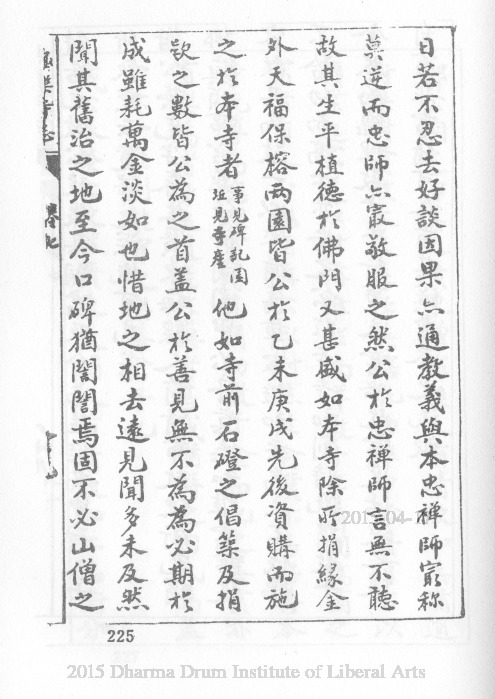 日若不忍去好談因果亦通教義與本忠禪師最称
莫逆而忠師亦最敬服之然公於忠禪師言無不聽
故其生平植德於佛門又甚盛如本寺除所捐緣金
外天福保榕兩園皆公於乙未庚戌先後資購而施
之於本寺者事見碑記園坵見寺產他如寺前石磴之倡築及捐
欵之數皆公為之首蓋公於善見無不為為必期於
成雖耗萬金淡如也惜地之相去遠見聞多未及然
聞其舊治之地至今口碑猶誾誾焉固不必山僧之
225
2015 Dharma Drum Institute of Liberal Arts